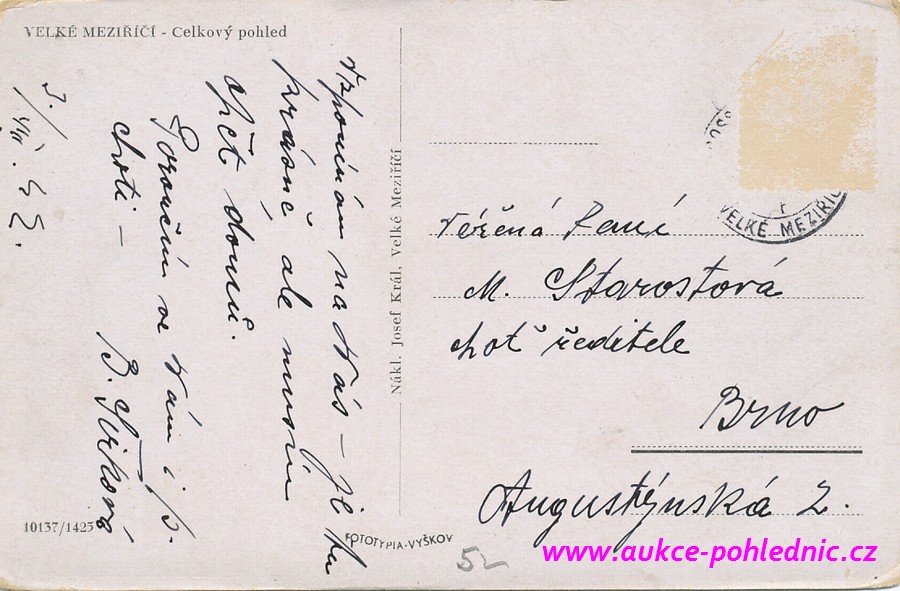 VELKÉ MEZIŘÍČÍ - Celkový pohled
vzpomínám na Vás - je tu
krásně ale musím
zpět domů.
Poroučím se Vám i p.
choti -
Nákl. Josef Král, Velké Meziříčí
10137/1425
FOTOTYPIA-VYŠKOV
VELKÉ MEZIŘÍČ
Vážená Paní
M. Starostová
choť ředitele
Brno
Augustýnská 2.
www.aukce-pohlednic.cz